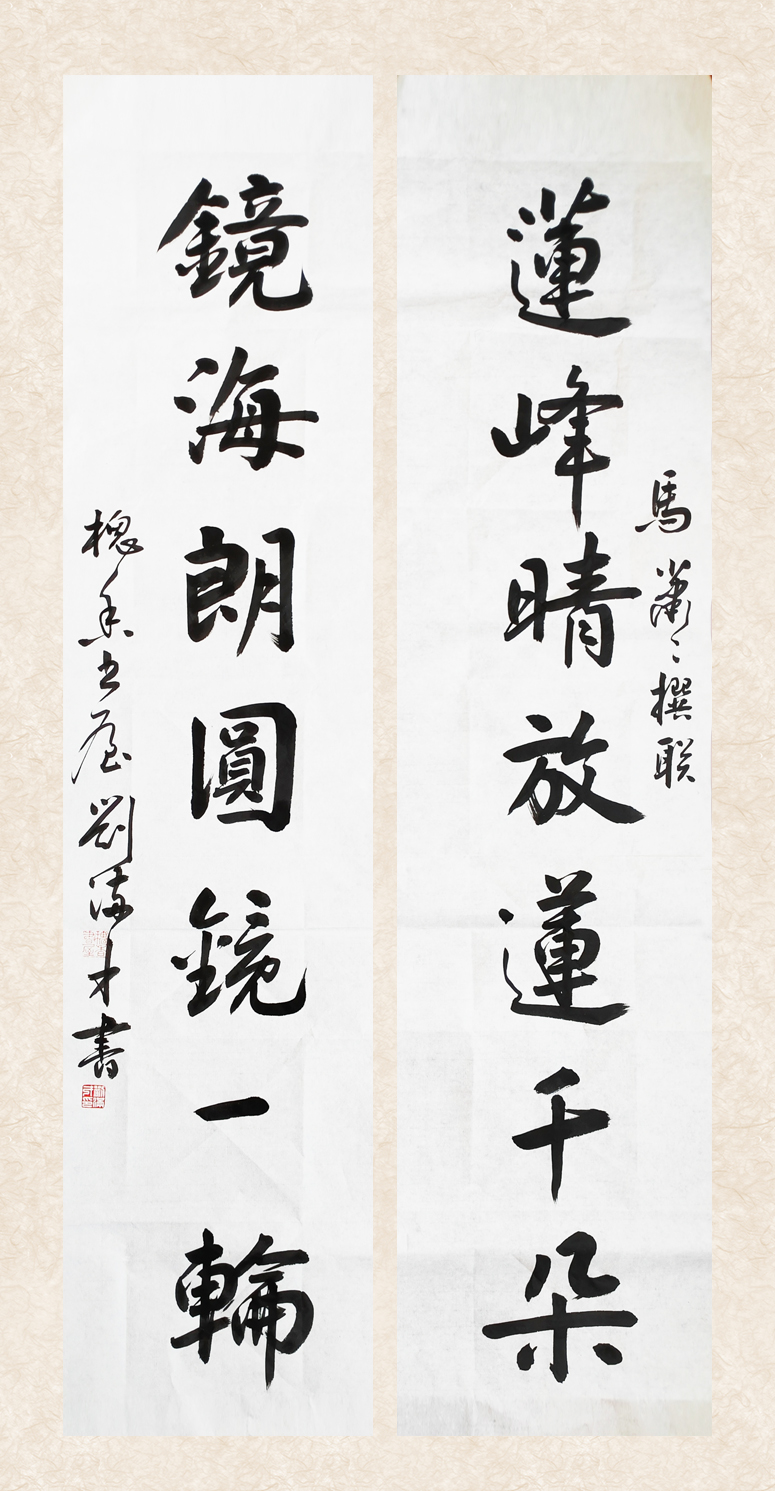 馬蕭蕭撰联
蓮峰晴放蓮千朵
鏡海朗圓鏡一輪
槐香书屋劉滿才書